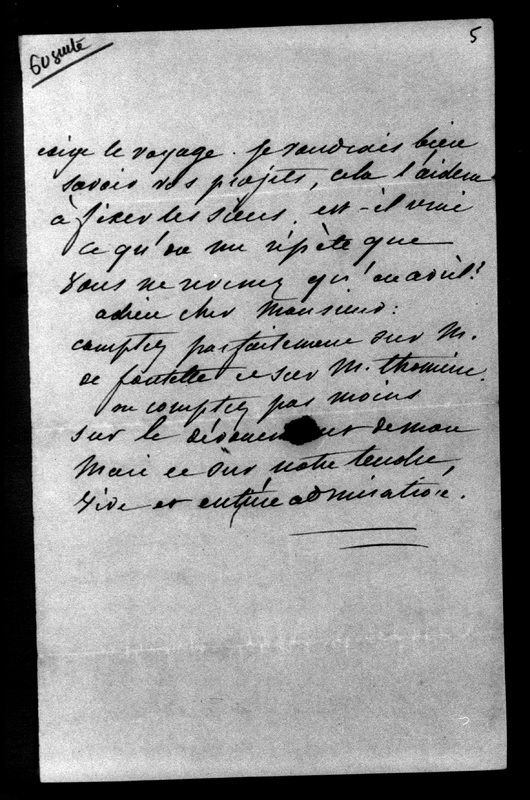 5
suite
le voyage. je voudrais bien
savoir vos projets, cela l'aidera
à fixer les siens. est-il vrai
ce qu'on me répète que
vous ne revenez qu'en avril?
adieu cher Monsieur:
comptez parfaitement sur M.
de fontette et sur M. thomine.
ne comptez pas moins
sur le dévouement de mon
Mari et sur notre tendre,
vive et entière admiration.